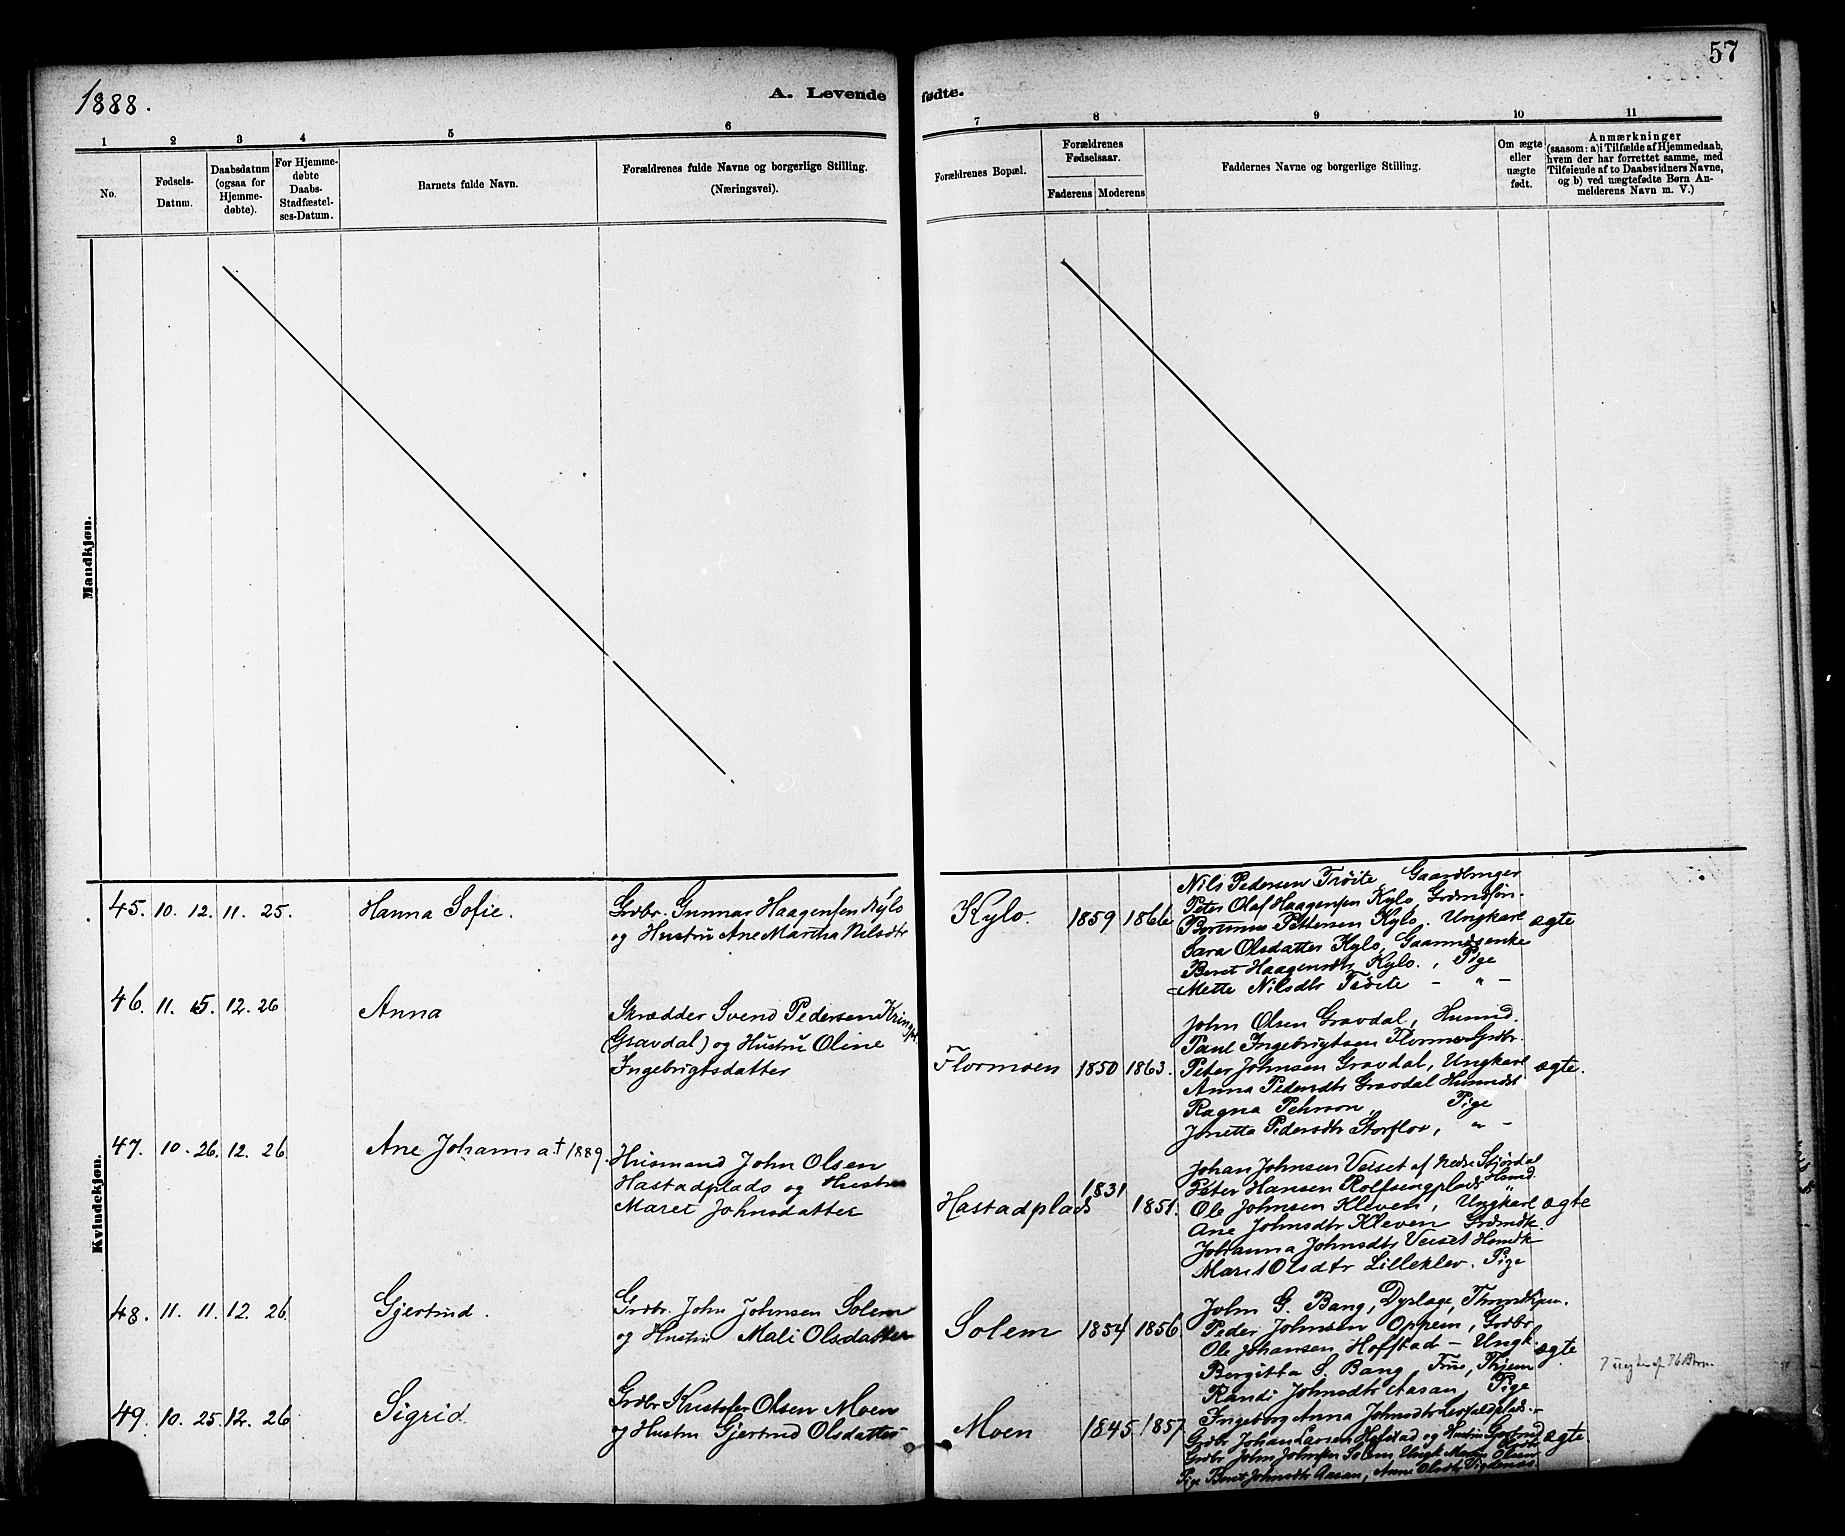 1888.
A. Levende fødte.
57
1 2 3 4 5 6 7 8 9 10 11
No.
Fødsels-
Datum.
Daabsdatum
(ogsaa for
Hjemme-
døbte).
For Hjemme-
døbte
Daabs-
Stadfæstel-
ses-Datum.
Barnets fulde Navn.
Forældrenes fulde Navne og borgerlige Stilling.
(Næringsvei).
Forældrenes Bopæl.
Forældrenes
Fødselsaar.
Faderens Moderens
Faddernes Navne og borgerlige Stilling.
Om ægte
eller
uægte
født.
Anmærkninger
(saasom: a) i Tilfælde af Hjemmedaab,
hvem der har forrettet samme, med
Tilføiende af to Daabsvidners Navne,
og b) ved uægtefødte Børn An-
melderens Navn m. V.)
Mandkjøn.
Kvindekjøn.
45. 10. 12. 11. 25. Hanna Sofie.
Grdbr. Gunnar Haagensen Kylo
og Hustru Ane Martha Nilsdtr
Kylo. 1859 1866
Nils Pedersen Trøite Gaardbruger
Peter Olaf Haagensen Kylo, Grdmdsøn.
Pettersen Kylo. Ungkarl ægte
Sara Olsdatter Kylo, Gaardmdsenke
Beret Haagensdtr Kylo., Pige
Mette Nilsdtr Trøite - " -
46. 11. 15. 12. 26 Anna
Skrædder Svend Pedersen
(Gravdal) og Hustru Oline
Ingebrigtsdatter
Flormoen 1850 1863.
John Olsen Gravdal, Husmd.
Paul Ingebrigtsen Flormo Grdbr.
Peter Johnsen Gravdal, Ungkarl ægte.
Anna Pedersdtr Gravdal
Ragna Pehrson, Pige
Jonetta Pedersdtr Storflor, " -
47. 10. 26. 12. 26 Ane Johanna. † 1889.
Husmand John Olsen
Hastadplads og Hustru
Maret Johnsdatter
Hastadplads 1831 1851.
Johan Johnsen Veiset af nedre Stjørdal
Peter Hansen Rolfsengplads Husmd.
Ole Johnsen Kleven, Ungkarl ægte
Ane Johnsdtr Kleven Grdmdk.
Johanna Johnsdtr Veiset Hsmdk
Marit Olsdtr Lilleklev. Pige
48. 11. 11. 12. 26 Gjertrud.
Grdbr. John Johnsen Solem
og Hustru Mali Olsdatter
Solem 1854 1856
John G. Bang, Dyrlæge, Throndhjem.
Peder Johnsen Oppem, Grdbr
Ole Johansen Hofstad - Ungk. ægte
Bergitta S. Bang, Frue, Thjem
Randi Johnsdtr Aasan, Pige
Ingeborg Anna Johnsdtr -
49. 10. 25. 12. 26 Sigrid
Grdbr Kristofer Olsen Moen
og Hustru Gjertrud Olsdatter
Moen 1845 1857
Grdbr Johan Larsen Hofstad og Hustru
Grdbr John Johnsen Solem Ungk Olsen ægte.
Pige Beret Johnsdtr Aasan, Anne Olsdtr